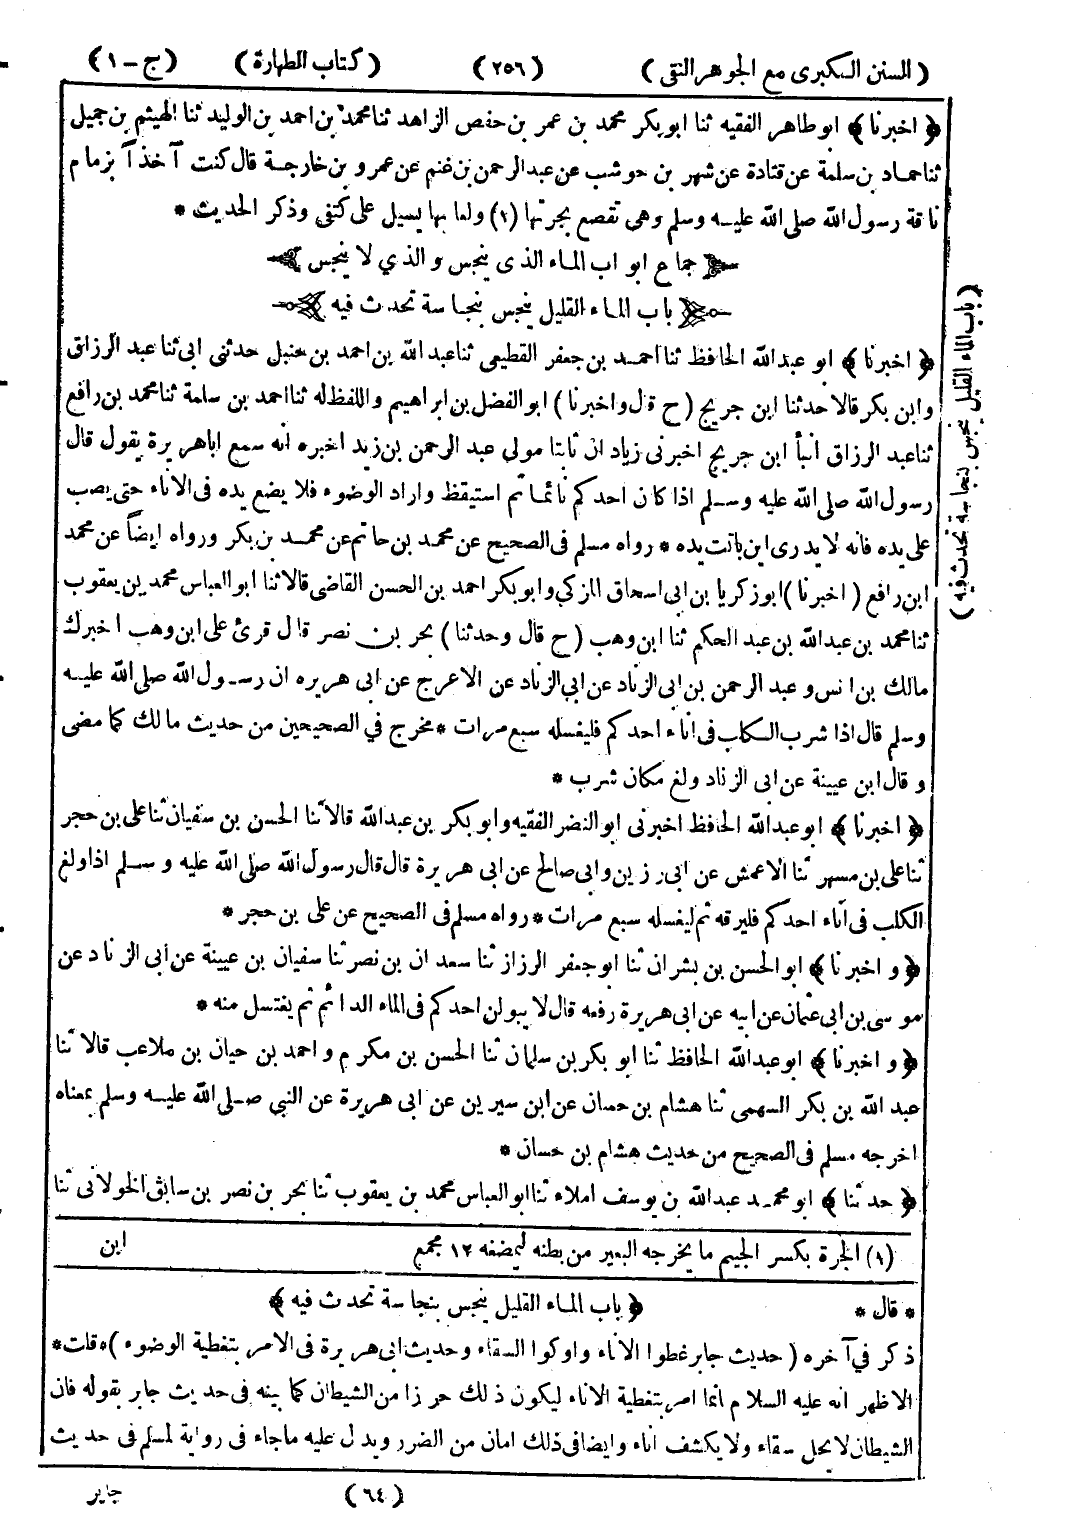 ( السنن الكبرى مع الجوهر النقى ) ( ٢٥٦ ) ( كتاب الطهارة ) ( ج – ١ )
﴿ اخبرنا ﴾ ابو طاهر الفقيه ثنا ابو بكر محمد بن عمر بن حفص الزاهد ثنا محمد بن احمد بن الوليد ثنا الهيثم بن جميل
ثنا حماد بن سلمة عن قتادة عن شهر بن حوشب عن عبد الرحمن بن غنم عن عمرو بن خارجة قال كنت آخذا بزمام
ناقة رسول الله صلى الله عليه وسلم وهى تقصع بجرتها (١) ولعابها يسيل على كتفى وذكر الحديث *
جماع ابواب الماء الذى ينجس والذي لا ينجس
باب الماء القليل ينجس بنجاسة تحدث فيه
﴿ اخبرنا ﴾ ابو عبد الله الحافظ ثنا احمد بن جعفر القطيعى ثنا عبد الله بن احمد بن حنبل حدثنى ابى ثنا عبد الرزاق
وابن بكر قالا حدثنا ابن جريج ( ح قال واخبرنا ) ابو الفضل بن ابراهيم واللفظ له ثنا احمد بن سلمة ثنا محمد بن رافع
ثنا عبد الرزاق انبأ ابن جريج اخبرنى زياد ان ثابتا مولى عبد الرحمن بن زيد اخبره انه سمع اباهريرة يقول قال
رسول الله صلى الله عليه وسلم اذا كان احدكم نائما ثم استيقظ واراد الوضوء فلا يضع يده فى الاناء حتى يصب
على يده فانه لا يدرى اين باتت يده * رواه مسلم فى الصحيح عن محمد بن حاتم عن محمد بن بكر ورواه ايضاً عن محمد
ابن رافع ( اخبرنا ) ابو زكريا بن ابى اسحاق المزكي وابو بكر احمد بن الحسن القاضى قالا ثنا ابو العباس محمد بن يعقوب
ثنا محمد بن عبد الله بن عبد الحكم ثنا ابن وهب ( ح قال وحدثنا ) بحر بن نصر قال قرئ على ابن وهب اخبرك
مالك بن انس وعبد الرحمن بن ابى الزناد عن ابي الزناد عن الاعرج عن ابى هريره ان رسول الله صلى الله عليه
وسلم قال اذا شرب الكلب فى اناء احدكم فليغسله سبع مرات * مخرج في الصحيحين من حديث مالك كما مضى
وقال ابن عيينة عن ابى الزناد ولغ مكان شرب *
﴿ اخبرنا ﴾ ابو عبد الله الحافظ اخبرنى ابو النضر الفقيه وابو بكر بن عبد الله قالا ثنا الحسن بن سفيان ثنا على بن حجر
ثنا على بن مسهر ثنا الاعمش عن ابى رزين وابى صالح عن ابى هريرة قال قال رسول الله صلى الله عليه وسلم اذا ولغ
الكلب فى اناء احدكم فليرقه ثم ليغسله سبع مرات * رواه مسلم فى الصحيح عن على بن حجر *
﴿ واخبرنا ﴾ ابو الحسن بن بشران ثنا ابو جعفر الرزاز ثنا سعدان بن نصر ثنا سفيان بن عيينة عن ابى الزناد عن
موسى بن ابى عثمان عن ابيه عن ابى هريرة رفعه قال لا يبولن احدكم فى الماء الدائم ثم يغتسل منه *
﴿ واخبرنا ﴾ ابو عبد الله الحافظ ثنا ابو بكر بن سلمان ثنا الحسن بن مكرم واحمد بن حيان بن ملاعب قالا ثنا
عبد الله بن بكر السهمى ثنا هشام بن حسان عن ابن سيرين عن ابى هريرة عن النبي صلى الله عليه وسلم بمعناه
اخرجه مسلم فى الصحيح من حديث هشام بن حسان *
﴿ حدثنا ﴾ ابو محمد عبد الله بن يوسف املاء ثنا ابو العباس محمد بن يعقوب ثنا بحر بن نصر بن سابق الخولانى ثنا
ابن
(١) الجرة بكسر الجيم ما يخرجه البعير من بطنه ليمضغه ١٢ مجمع
* قال * ﴿ باب الماء القليل ينجس بنجاسة تحدث فيه ﴾
ذكر في آخره ( حديث جابر غطوا الاناء واوكوا السقاء وحديث ابى هريرة فى الامر بتغطية الوضوء ) * قلت *
الاظهر انه عليه السلام انما امر بتغطية الاناء ليكون ذلك حرزا من الشيطان كما بينه فى حديث جابر بقوله فان
الشيطان لا يحل سقاء ولا يكشف اناء وايضا فى ذلك امان من الضرر ويدل عليه ما جاء فى رواية لمسلم فى حديث
جابر
( ٦٤ )
( باب الماء القليل ينجس بنجاسة تحدث فيه )